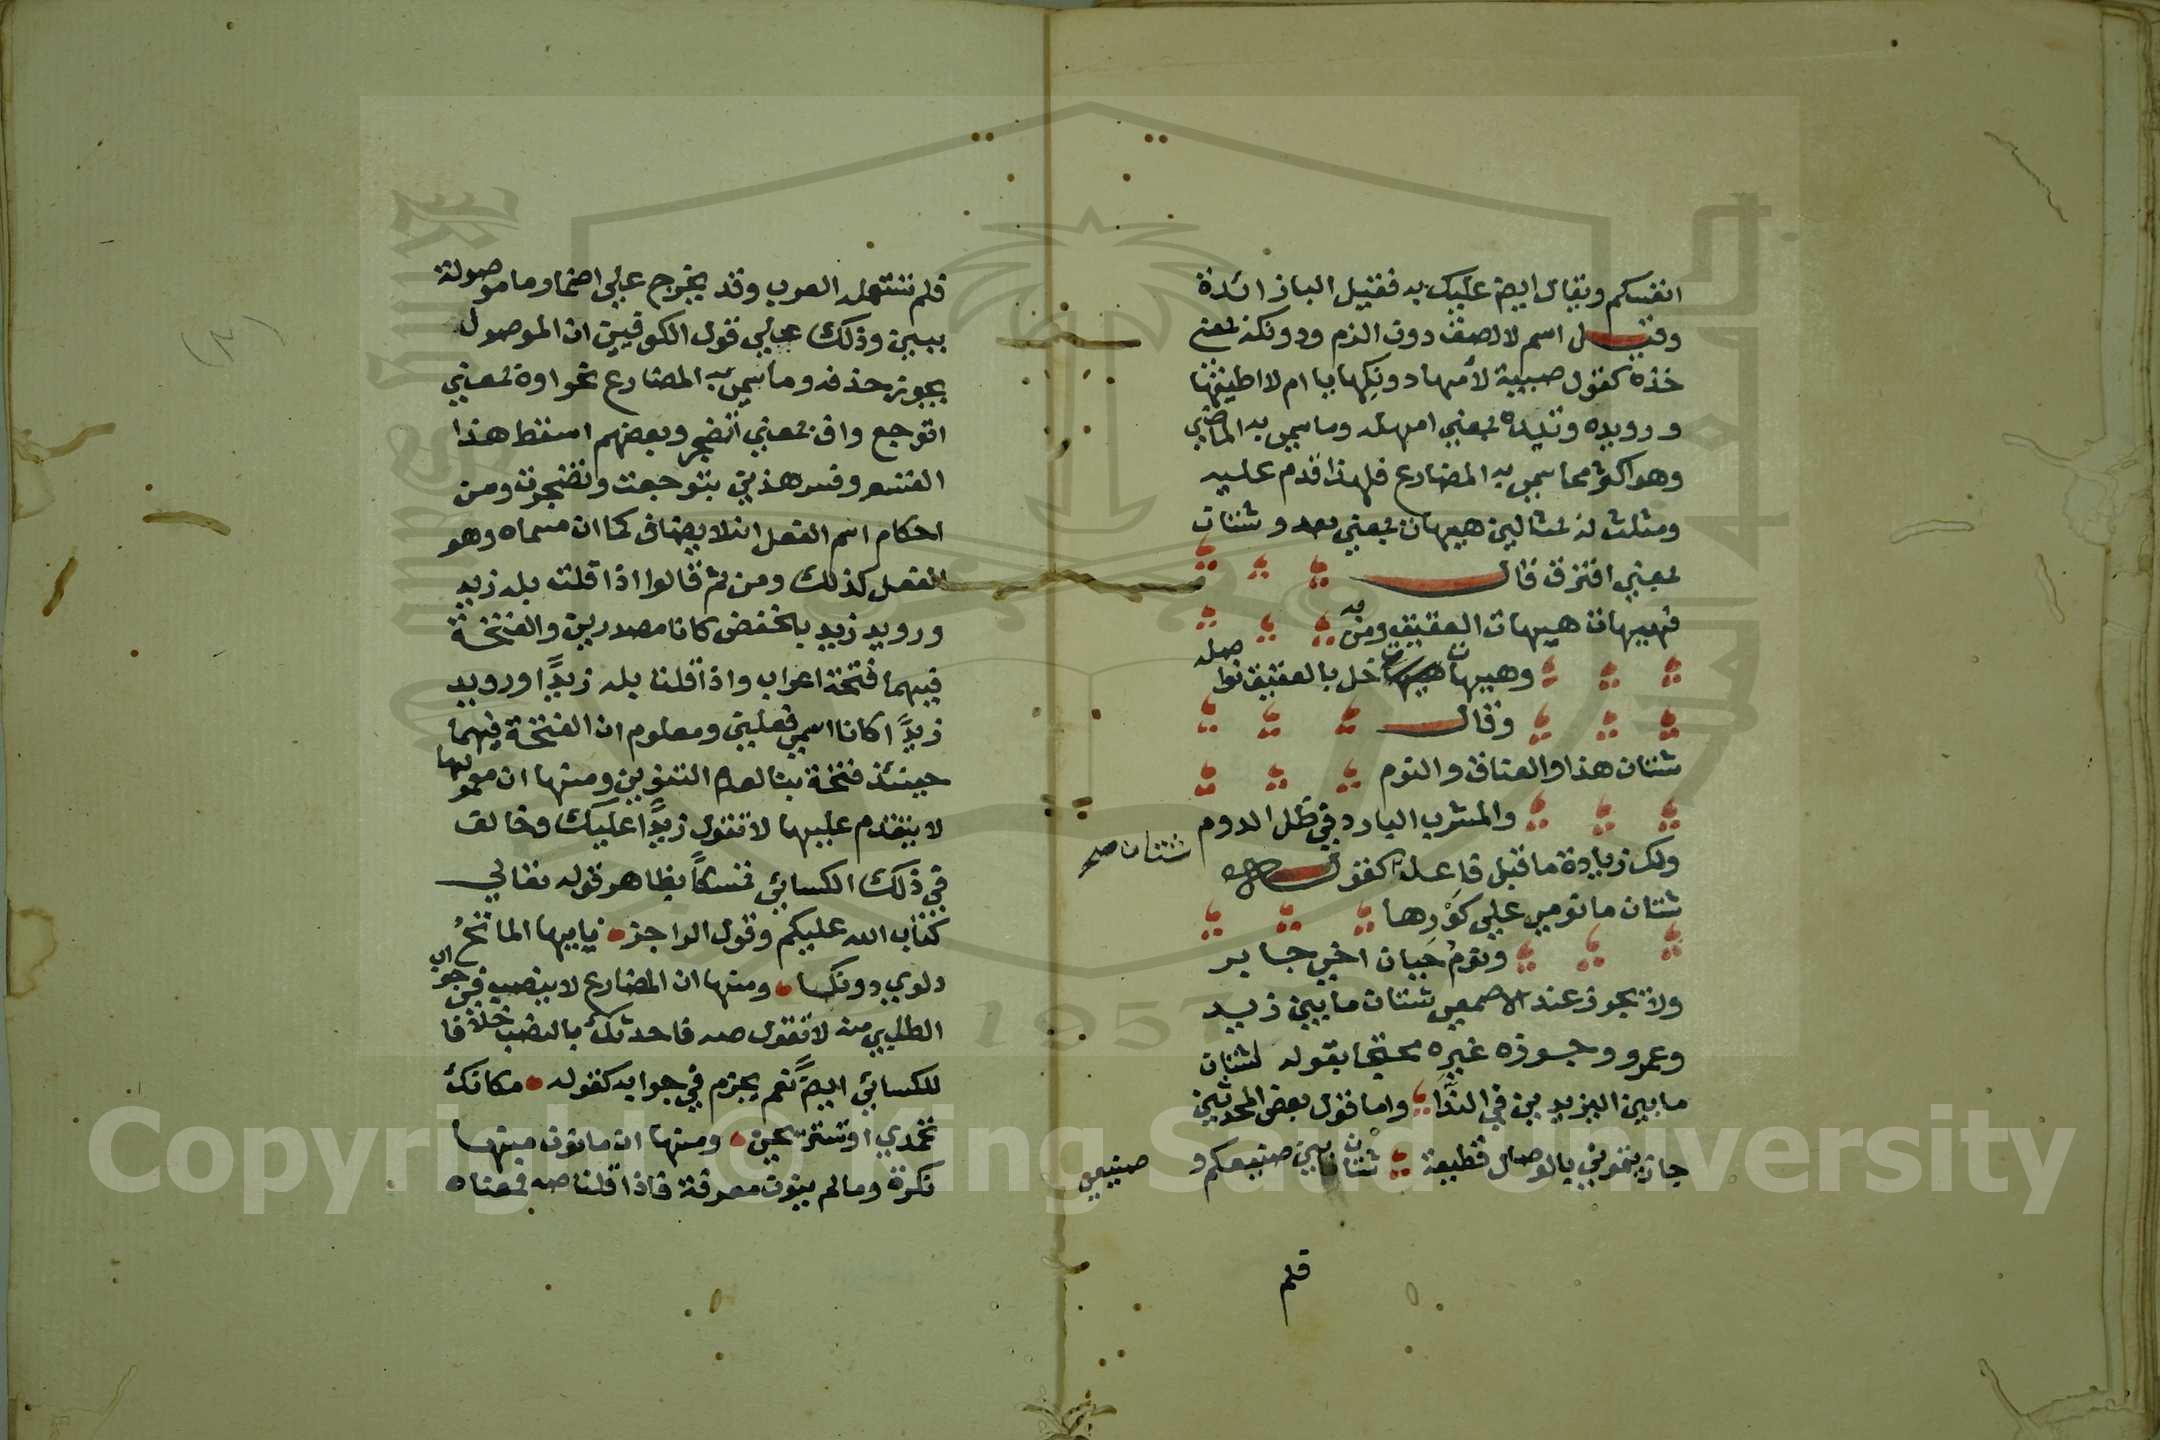 انفسكم ويقال ايضا عليك به فقيل الباز ائدة
وقيل اسم لالصف دون الزم ودونكه بمعنى
خذه كقول صبية لأمها دونكها يا ام لا اطيقها
ورويده وتيده بمعنى امهله وما سمى به الماضي
وهو اكثر مما سمى به المضارع فلهذا قدم عليه
ومثلت له بمثالين هيهات بمعنى بعد وشتان
بمعنى افترق قال
فهيهات هيهات العقيق ومن به
وهيهات خل بالعقيق نواصله
وقال
شتان هذا والعناق والنوم
والمشرب البارد في ظل الدوم
ولك زيادة ما قبل فاعل شتان صح كقوله
شتان ما يومي على كورها
ويوم حيان اخي جابر
ولا يجوز عند الاصمعي شتان ما بين زيد
وعمرو وجوزه غيره محتجا بقوله لشتان
ما بين اليزيدين في الندا واما قول بعض المحدثين
جازيتموني بالوصال قطيعة شتان بين صنيعكم و صنيعي
فلم
فلم تستعمله العرب وقد يخرج على اضما وما موصولة
ببين وذلك على قول الكوفيين ان الموصول
يجوز حذفه وما سمى به المضارع نحو اوه بمعنى
اتوجع واف بمعنى أتضجر وبعضهم اسقط هذا
القسم وفسر هذين بتوجعت وتضجرت ومن
احكام اسم الفعل انه لا يضاف كما ان مسماه وهو
الفعل كذلك ومن ثم قالوا اذا قلت بله زيد
ورويد زيد بالخفض كانا مصدرين والفتحة
فيهما فتحة اعراب واذا قلنا بله زيدًا ورويد
زيدًا كانا اسمي فعلين ومعلوم ان الفتحة فيهما
حينئذ فتحة بنا لعدم التنوين ومنها ان معمولها
لا يتقدم عليها لا تقول زيدًا عليك وخالف
في ذلك الكسائي تمسكًا بظاهر قوله تعالى
كتاب الله عليكم وقول الراجز يا ايها المائح
دلوي دونكا ومنها ان المضارع لا ينصب في جواب
الطلبي منه لا تقول صه فاحدثك بالنصب خلافا
للكسائي ايضًا نعم يجزم في جوابه كقوله مكانك
تحمدي او تستريحين ومنها ان ما نون منها
نكرة وما لم ينون معرفة فاذا قلنا صه فمعناه
Copyright © King Saud University
1957